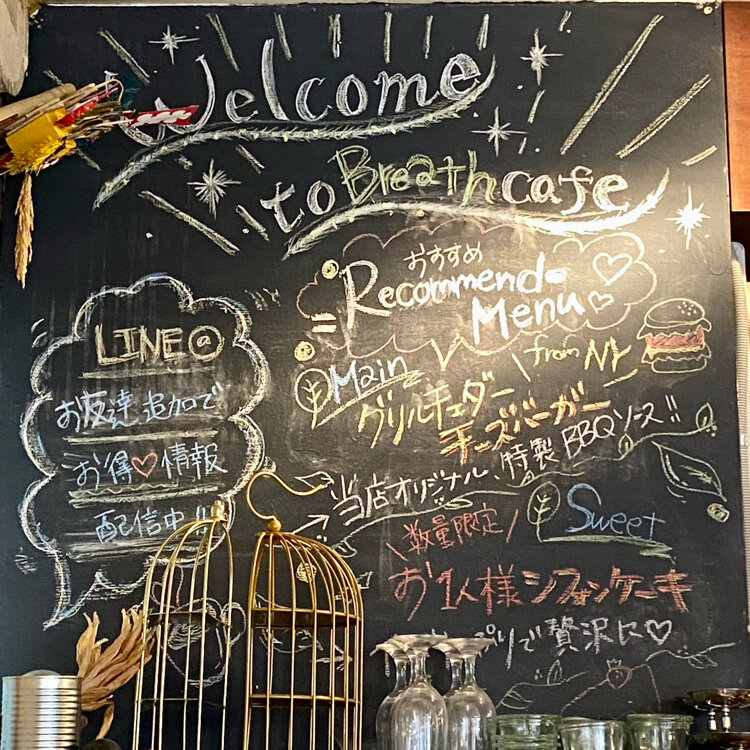 Welcome
to Breath cafe
おすすめ
Recommend
Menu
Main
from NY
グリルチェダー
チーズバーガー
当店オリジナル、特製BBQソース!!
Sweet
数量限定
お1人様シフォンケーキ
で贅沢に♡
LINE@
お友達追加で
お得♡情報
配信中!!